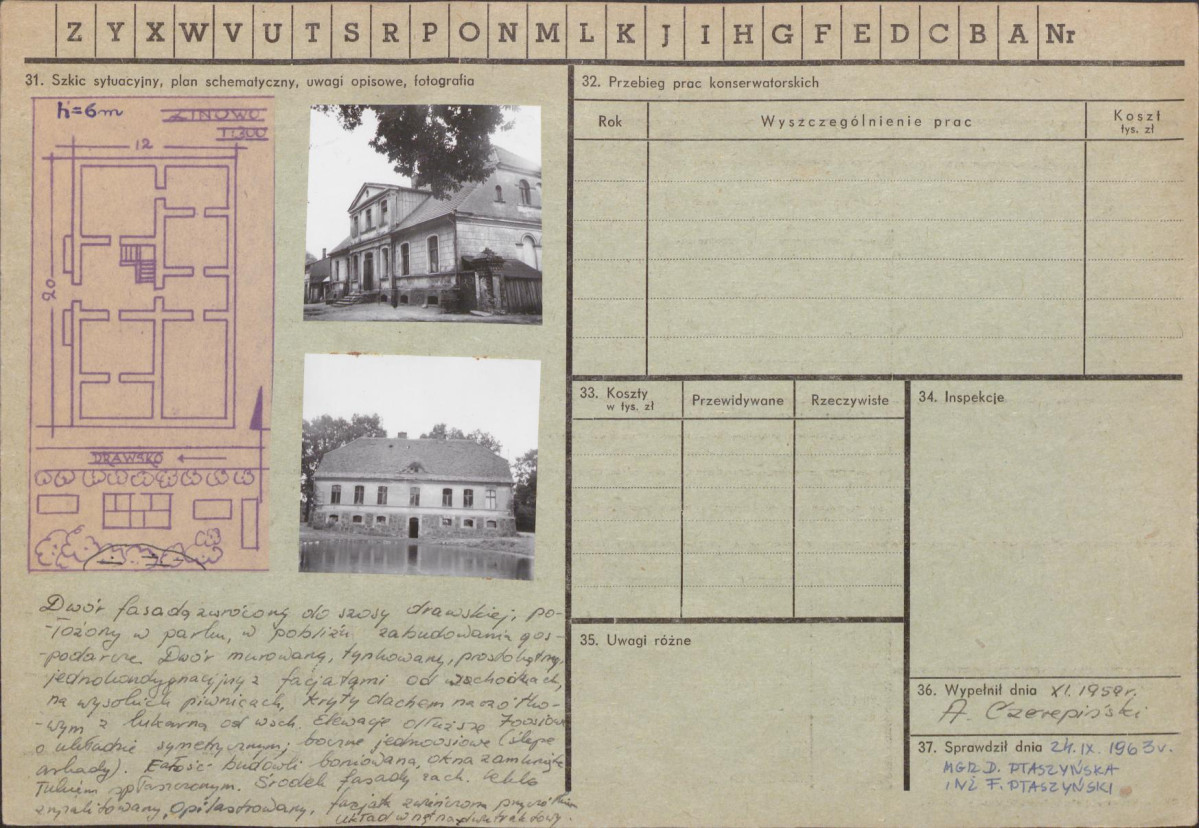 Z Y X W V U T S R P O N M L K J I H G F E D C B A Nr
31. Szkic sytuacyjny, plan schematyczny, uwagi opisowe, fotografia
h=6m
ZINOWO
1:300
12
20
DRAWSKO
Dwór fasadą zwrócony do szosy drawskiej, po-
-łożony w parku, w pobliżu zabudowania gos-
-podarcze. Dwór murowany, tynkowany, prostokątny,
jednokondygnacyjny z facjatami od
na wysokich piwnicach, kryty dachem naczółko-
-wym z lukarną od wsch. Elewacje dłuższe 7osiowe
o układzie symetrycznym; boczne jednoosiowe (ślepe
arkady). Całość budowli boniowana, okna zamknięte
łukiem spłaszczonym. Środek fasady zach. lekko
zryzalitowany, opilastrowany, facjata zwieńczona przyczółkiem
układ wnętrz dwutraktowy.
32. Przebieg prac konserwatorskich
Rok
Wyszczególnienie prac
Koszt
tys. zł
33. Koszty
w tys. zł
Przewidywane
Rzeczywiste
34. Inspekcje
35. Uwagi różne
36. Wypełnił dnia XI. 1959r.
A. Czerepiński
37. Sprawdził dnia 24. IX. 1963r.
MGR D. PTASZYŃSKA
INŻ F. PTASZYŃSKI